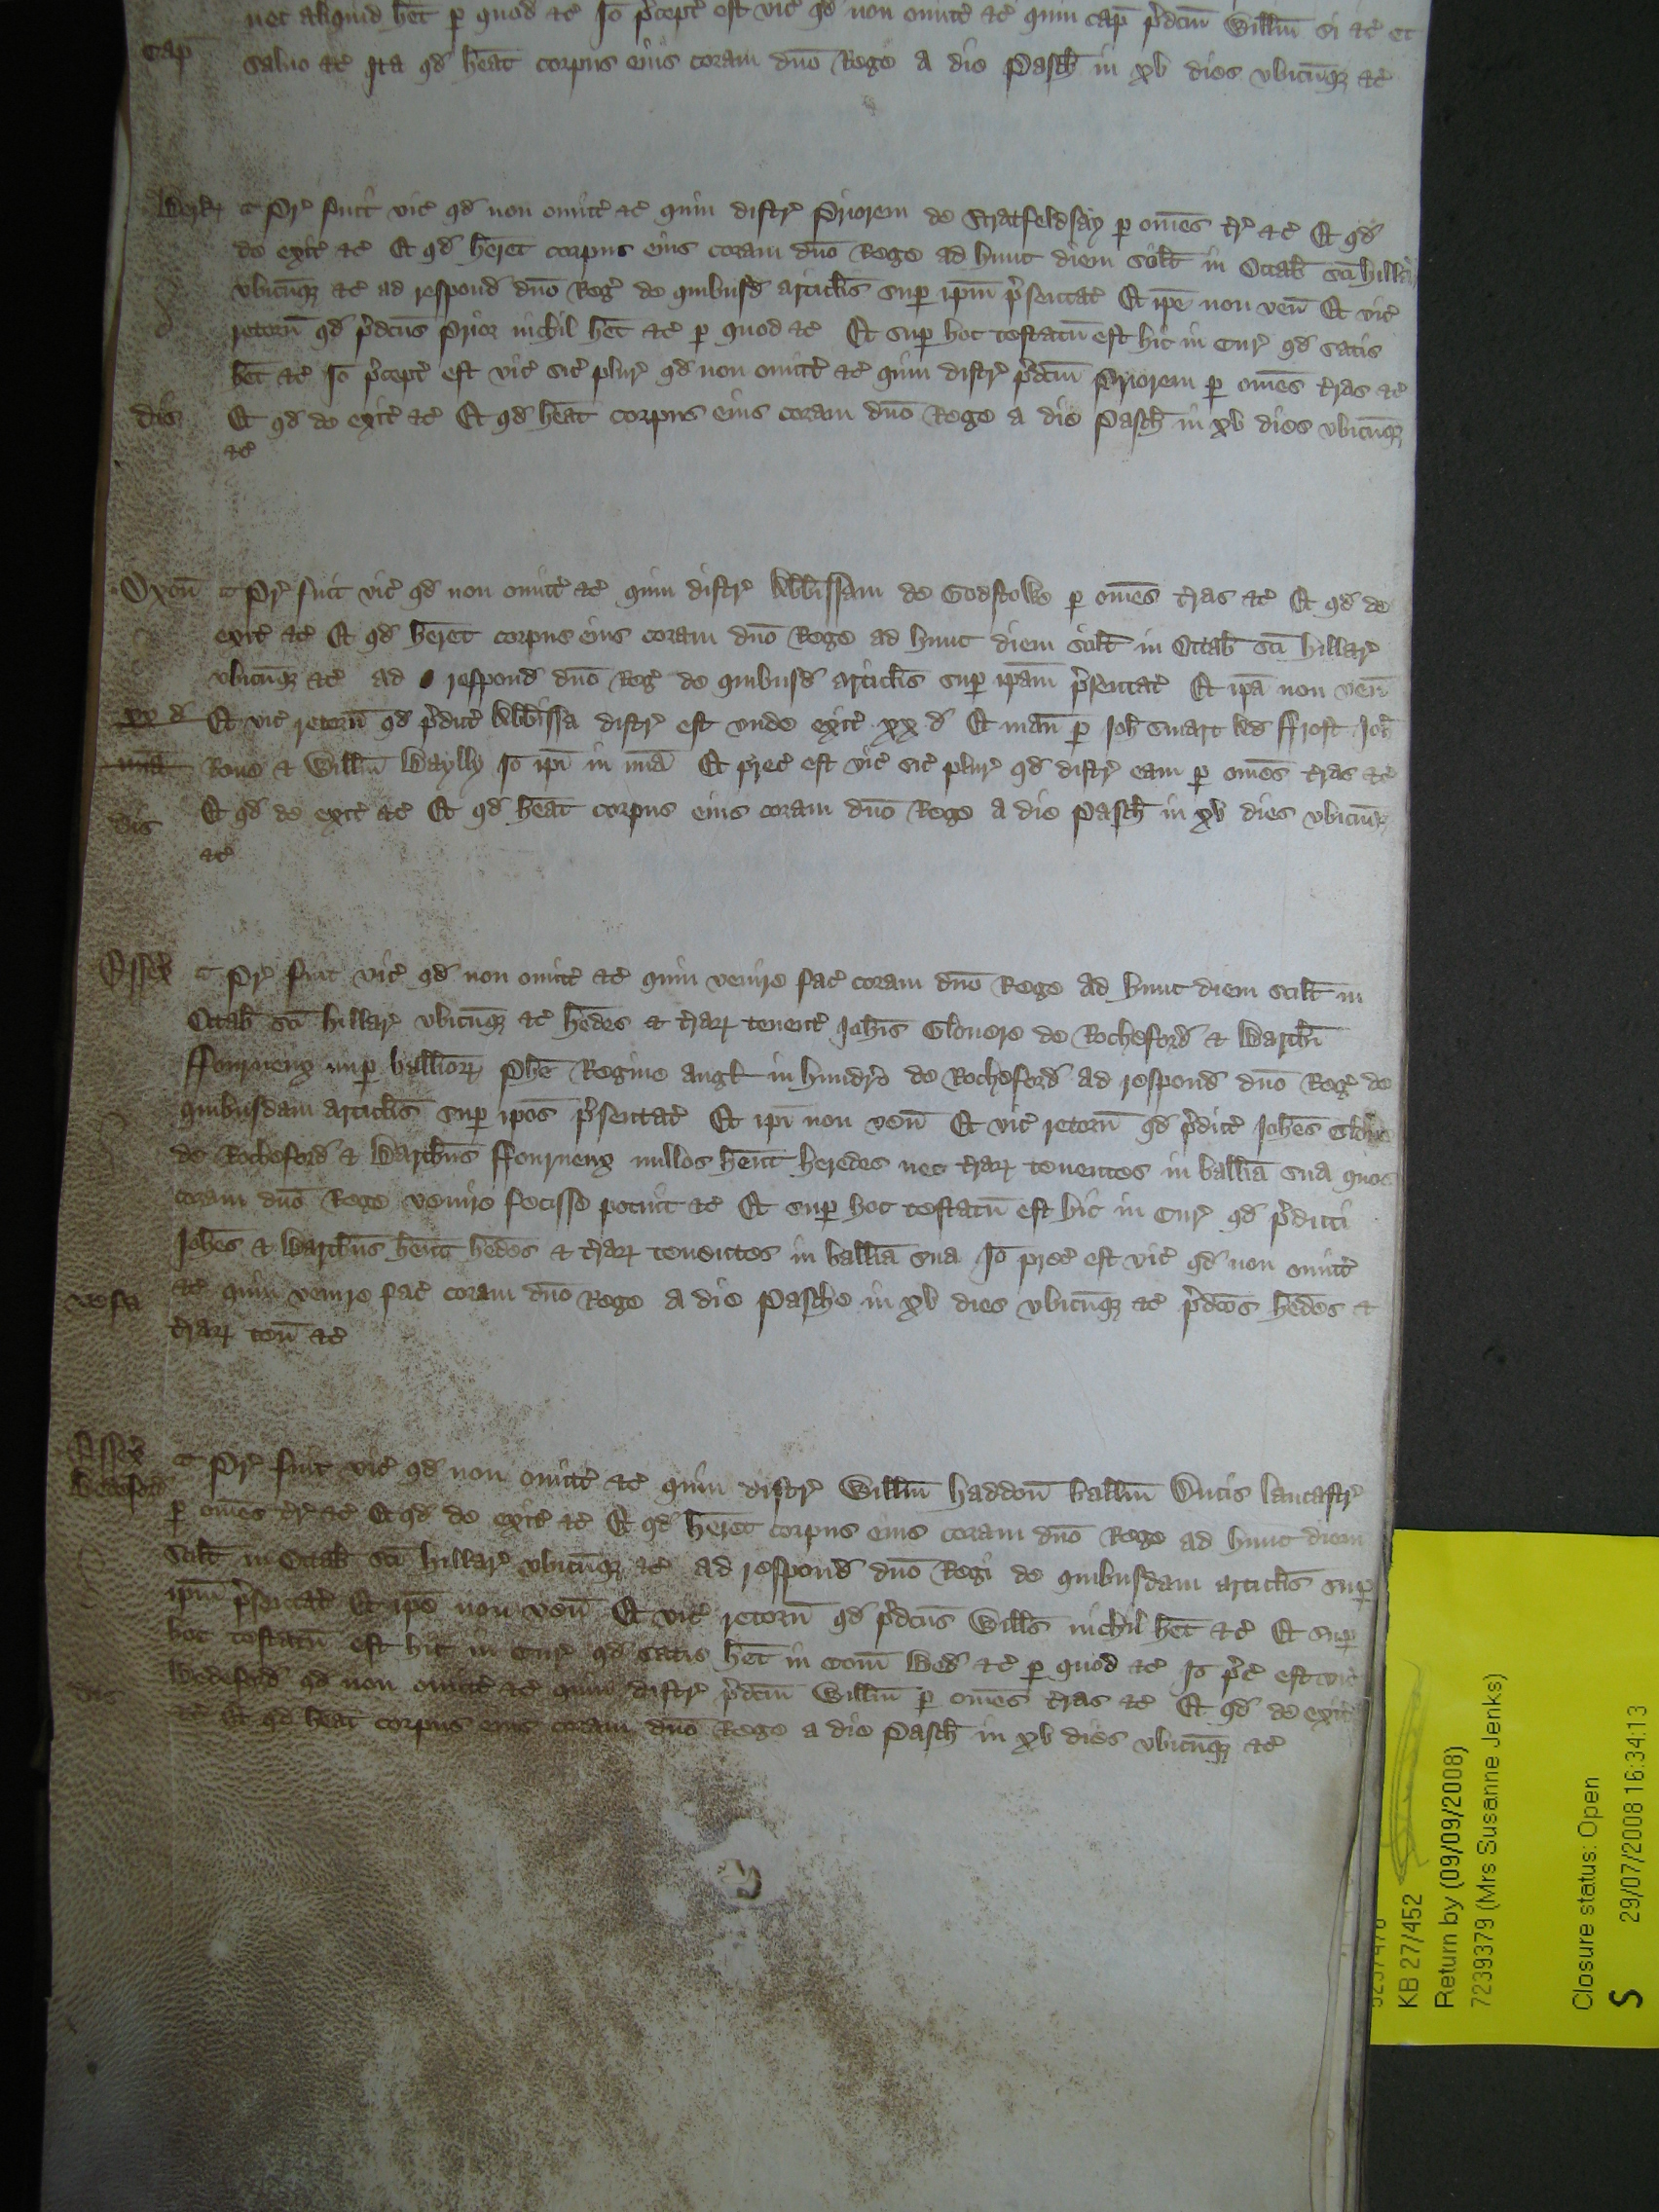 nec aliquid het̄ p quod &c Io p̄cept̄ est vic̄ qd non omitt̄ &c quin cap̄ p̄dcm̄ Willm̄ si &c et
Cap̄ salvo &c Ita qd heat̄ corpus eius coram dn̄o Rege a die Pasch̄ in xv dies vbicumq; &c
Berk̄ Pr̄ fuit vic̄ qd non omitt̄ &c quin distr̄ Priorem de Stratfeldsay p om̄es tr̄r &c Et qd
de exit̄ &c Et qd her̄et corpus eius coram dn̄o Rege ad hunc diem scilt̄ in Octab̄ sc̄i Hillar̄
vbicumq; &c ad respond̄ dn̄o Reḡ de quibusd̄ articlis̄ sup ipm̄ p̄sentat̄ Et ip̄e non ven̄ Et vic̄
retorn̄ qd p̄dcus̄ Prior nichil het̄ &c p quod &c Et sup hoc testatū est hic in Cur̄ qd satis
het̄ &c Io p̄cept̄ est vic̄ sic̄ plur̄ qd non omitt̄ &c quin distr̄ p̄dcm̄ Priorem p om̄es tr̄ras &c
dis Et qd de exit̄ &c Et qd heat̄ corpus eius coram dn̄o Rege a die Pasch̄ in xv dies vbicumq;
&c
Oxon̄ Pr̄ fuit vic̄ qd non omitt̄ &c quin distr̄ Abb̄issam de Godstowe p om̄es tr̄ras &c Et qd de
exit̄ &c Et qd her̄et corpus eius coram dn̄o Rege ad hunc diem scilt̄ in Octab̄ sc̄i Hillar̄
vbicumq; &c ad respond̄ dn̄o Reḡ de quibusd̄ articlis̄ sup ipam̄ p̄sentat̄ Et ip̄a non ven̄
xx d Et vic̄ retorn̄ qd p̄dict̄ Abb̄issa distr̄ est vnde exit̄ xx d Et man̄ p Joh̄ Smart Ad̄ Frost Joh̄
mīa Rove & Willm̄ Baylly Io ip̄i in mīa Et prec̄ est vic̄ sic̄ plur̄ qd distr̄ eam p om̄es tr̄ras &c
dis Et qd de exit̄ &c Et qd heat̄ corpus eius coram dn̄o Rege a die Pasch̄ in xv dies vbicumq;
&c
Essex̄ Pr̄ fuit vic̄ qd non omitt̄ &c quin venire fac̄ coram dn̄o Rege ad hunc diem scilt̄ in
Octab̄ sc̄i Hillar̄ vbicumq; &c hedes̄ & tr̄rar̄ tenent̄ Joh̄is Glovere de Rocheford̄ & Barth̄i
ffourneux nup ballior̄ Phe Regine Angl̄ in hundr̄o de Rocheford̄ ad respond̄ dn̄o Reḡ de
quibusdam articlis̄ sup ipos̄ p̄sentat̄ Et ip̄i non ven̄ Et vic̄ retorn̄ qd p̄dict̄ Joh̄es Glov̄e
de Rocheford̄ & Barthus̄ ffourneux nullos hent̄ heredes nec tr̄rar̄ tenentes in ballia sua quos
coram dn̄o Rege venire fecisse potuit &c Et sup hoc testatū est hic in Cur̄ qd p̄dicti
Joh̄es & Barthus̄ hent̄ hedes̄ & tr̄rar̄ tenentes in ballia sua Io prec̄ est vic̄ qd non omitt̄
ve fa &c quin venire fac̄ coram dn̄o Rege a die Pasche in xv dies vbicumq; &c p̄dcos̄ hedes̄ &
tr̄rar̄ ten̄ &c
Essex̄ Pr̄ fuit vic̄ qd non omitt̄ &c quin distr̄ Willm̄ Haddon̄ ballm̄ Ducis Lancastr̄
Bedeford̄ p om̄es tr̄r &c Et qd de exit̄ &c Et qd her̄et corpus eius coram dn̄o Rege ad hunc diem
scilt̄ in Octab̄ sc̄i Hillar̄ vbicumq; &c ad respond̄ dn̄o Regi de quibusdam articlis̄ sup
ipm̄ p̄sentat̄ Et ip̄e non ven̄ Et vic̄ retorn̄ qd p̄dcus̄ Wills̄ nichil het̄ &c Et sup
hoc testatū est hic in Cur̄ qd satis het̄ in Com̄ Bed̄ &c p quod &c Io p̄c̄ est vic̄
Bedeford̄ qd non omitt̄ &c quin distr̄ p̄dcm̄ Willm̄ p om̄es tr̄ras &c Et qd de exit̄
dis &c Et qd heat̄ corpus eius coram dn̄o Rege a die Pasch̄ in xv dies vbicumq; &c
KB 27/452
Return by (09/09/2008)
7239379 (Mrs Susanne Jenks)
Closure status: Open
S 29/07/2008 16:34:13